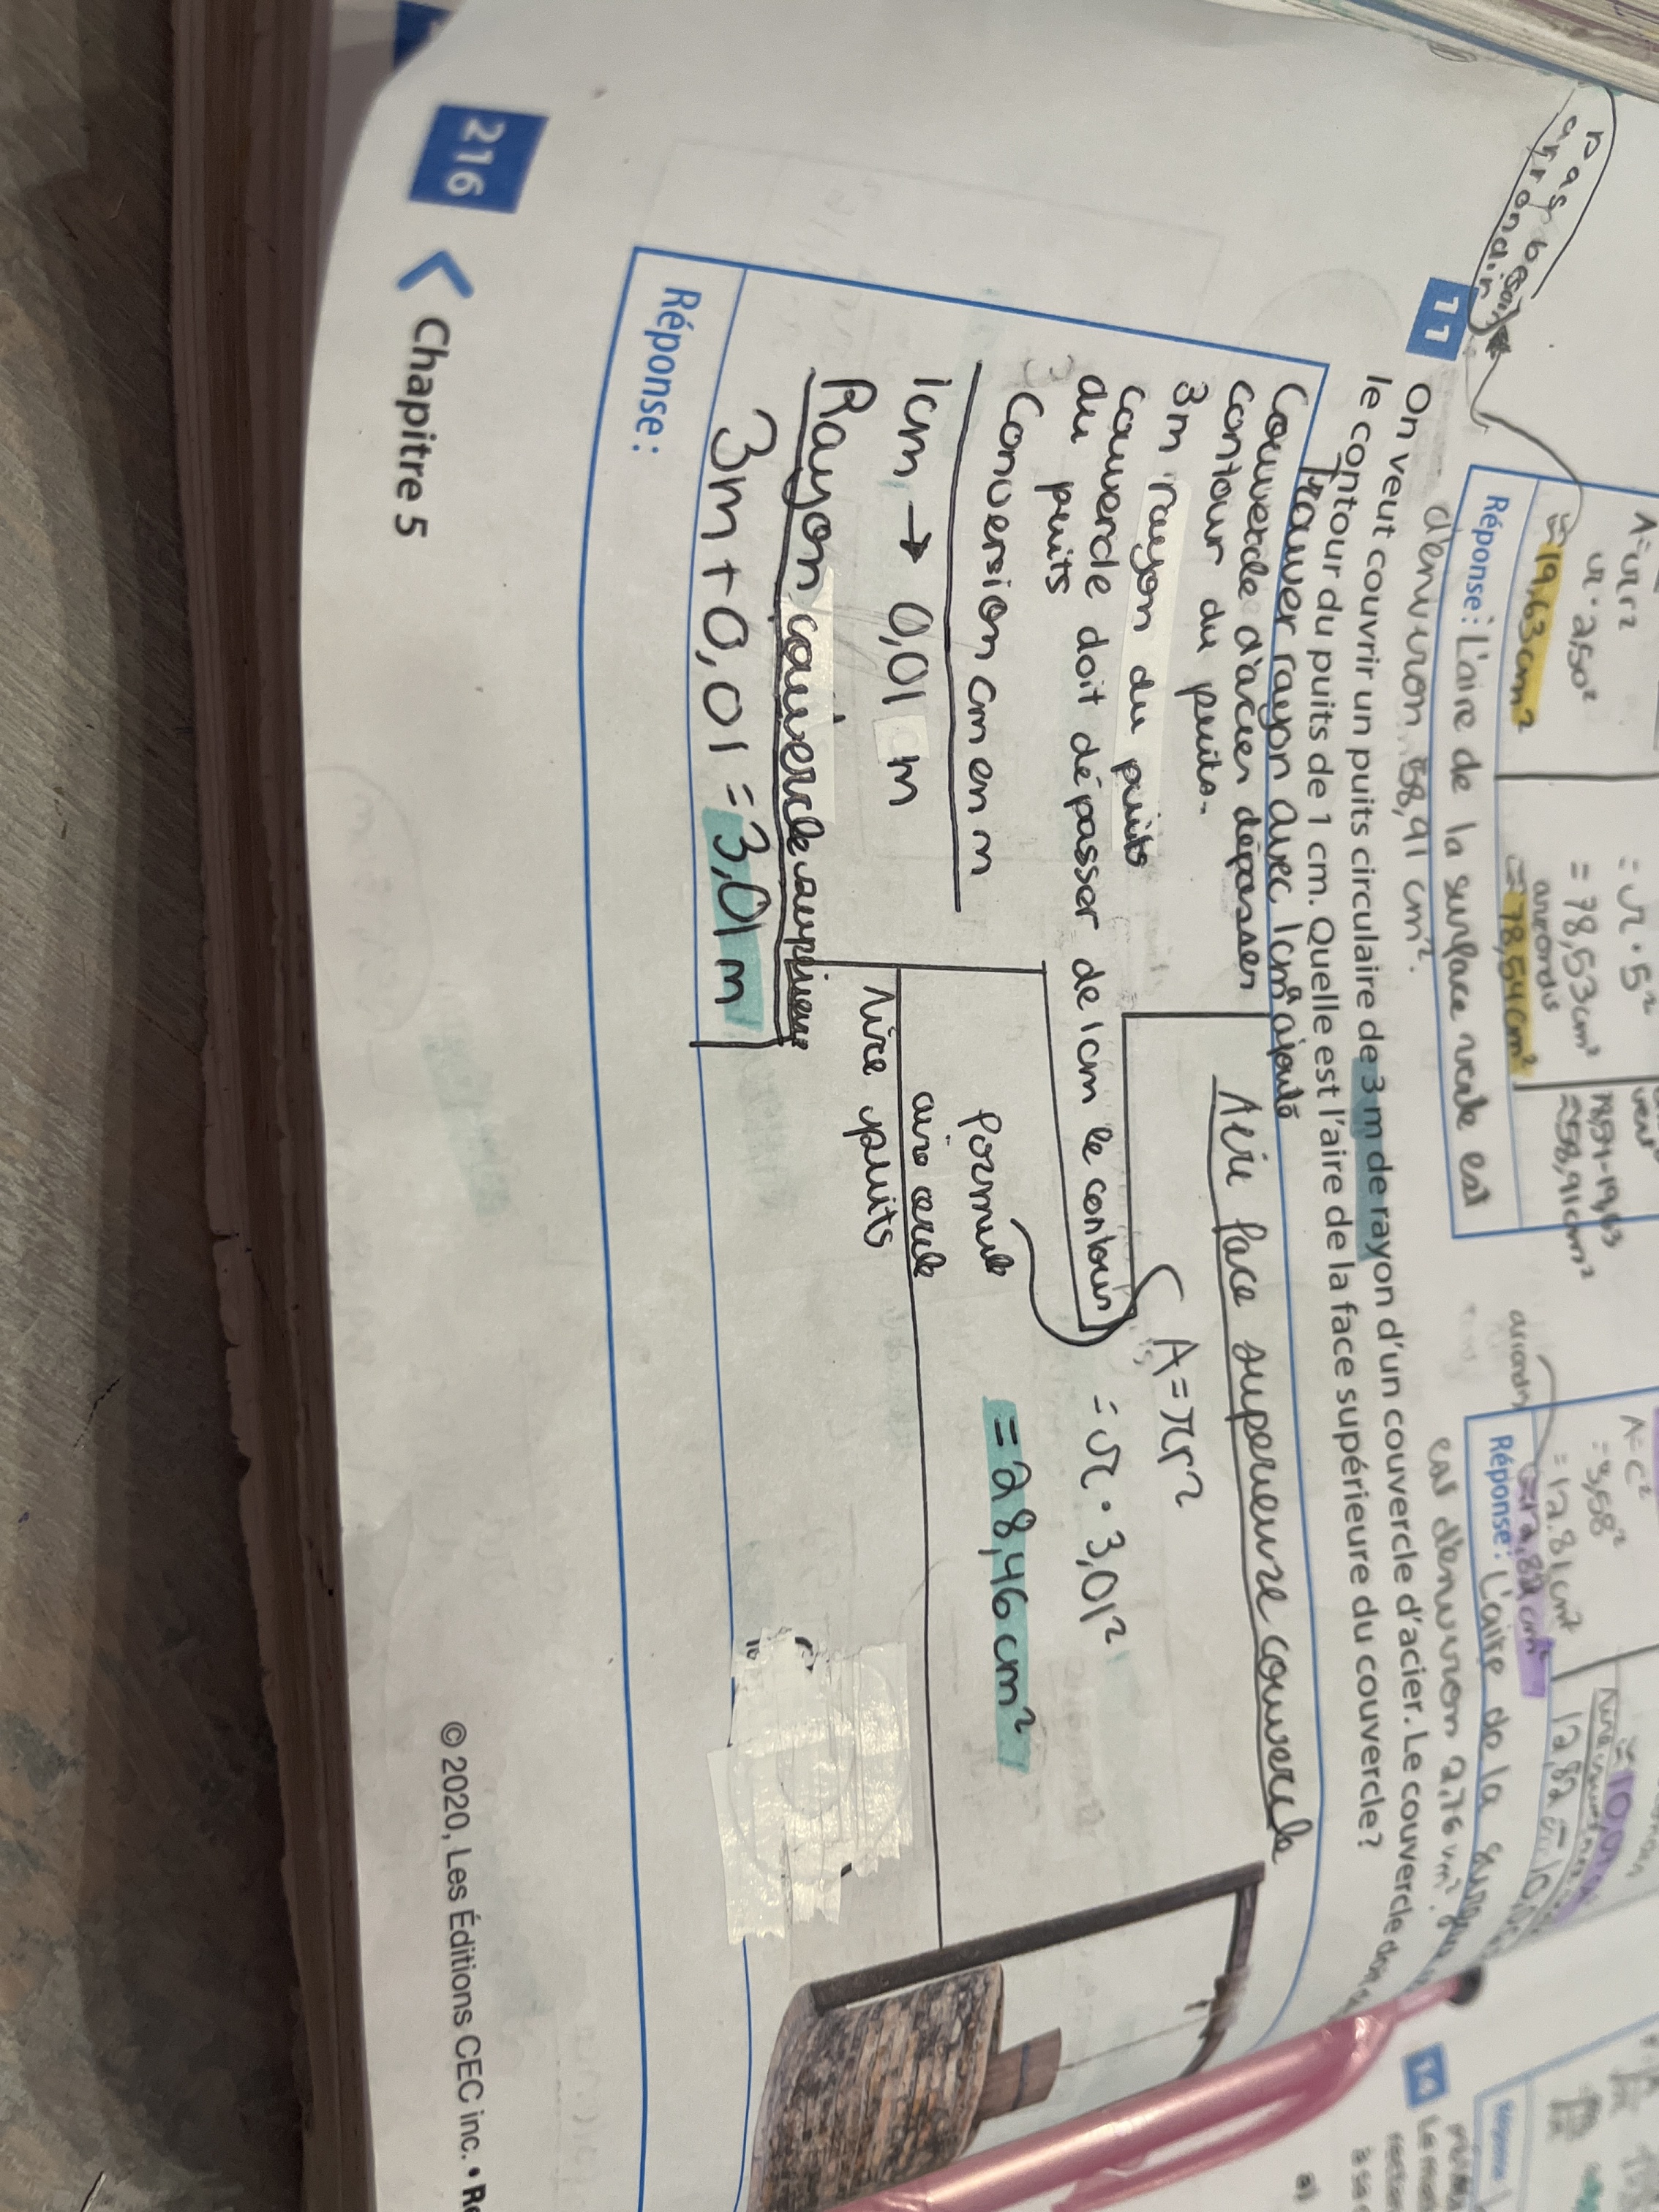 pas besoin
arrondir
A=πr²
π·2,50²
≈19,63cm²
= π·5²
= 78,53cm²
arrondis
≈78,54cm²
78,54-19,63
≈58,91cm²
Réponse: L'aire de la surface verte est
d'environ 58,91 cm².
A=c²
=3,58²
=12.81cm²
≈12,82cm²
arrondir
Réponse: L'aire de la
est d'environ 2,76 cm²
11
On veut couvrir un puits circulaire de 3 m de rayon d'un couvercle d'acier. Le couvercle doit
le contour du puits de 1 cm. Quelle est l'aire de la face supérieure du couvercle?
Trouver rayon avec 1cm ajouté
Couvercle d'acier dépasser
contour du puits.
3m rayon du puits
couvercle doit dépasser de 1cm le contour
du puits
Conversion cm en m
1cm → 0,01 m
Rayon couvercle supérieure
3m + 0,01 = 3,01 m
Aire face supérieure couvercle
A=πr²
= π · 3,01²
= 28,46 cm²
formule
aire cercle
Aire puits
Réponse :
14
a)
216
Chapitre 5
© 2020, Les Éditions CEC inc. •